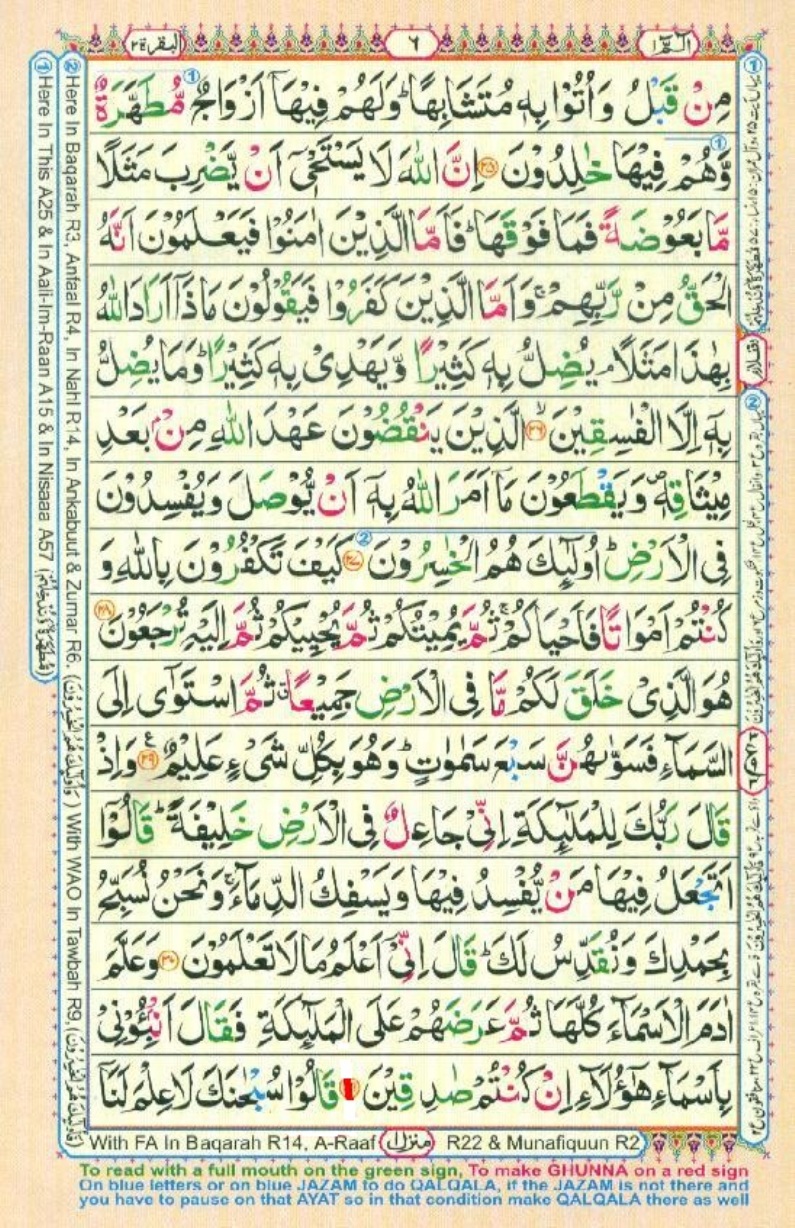 البقرة ٢
٦
الٓمّٓ ١
مِنْ قَبْلُ وَاُتُوْا بِهٖ مُتَشَابِهًا ؕ وَلَهُمْ فِيْهَاۤ اَزْوَاجٌ مُّطَهَّرَةٌ ①
وَّهُمْ فِيْهَا خٰلِدُوْنَ ۟﴿۲۵﴾ اِنَّ اللّٰهَ لَا يَسْتَحْیٖۤ اَنْ يَّضْرِبَ مَثَلًا
مَّا بَعُوْضَةً فَمَا فَوْقَهَا ؕ فَاَمَّا الَّذِيْنَ اٰمَنُوْا فَيَعْلَمُوْنَ اَنَّهُ
الْحَقُّ مِنْ رَّبِّهِمْ ۚ وَاَمَّا الَّذِيْنَ كَفَرُوْا فَيَقُوْلُوْنَ مَاذَاۤ اَرَادَ اللّٰهُ
بِهٰذَا مَثَلًا ۘ يُضِلُّ بِهٖ كَثِيْرًا وَّيَهْدِیْ بِهٖ كَثِيْرًا ؕ وَمَا يُضِلُّ
بِهٖۤ اِلَّا الْفٰسِقِيْنَ ۙ﴿۲۶﴾ الَّذِيْنَ يَنْقُضُوْنَ عَهْدَ اللّٰهِ مِنْۢ بَعْدِ
مِيْثَاقِهٖ ۪ وَيَقْطَعُوْنَ مَاۤ اَمَرَ اللّٰهُ بِهٖۤ اَنْ يُّوْصَلَ وَيُفْسِدُوْنَ
فِی الْاَرْضِ ؕ اُولٰٓئِكَ هُمُ الْخٰسِرُوْنَ ② ﴿۲۷﴾ كَيْفَ تَكْفُرُوْنَ بِاللّٰهِ وَ
كُنْتُمْ اَمْوَاتًا فَاَحْيَاكُمْ ۚ ثُمَّ يُمِيْتُكُمْ ثُمَّ يُحْيِيْكُمْ ثُمَّ اِلَيْهِ تُرْجَعُوْنَ ﴿۲۸﴾
هُوَ الَّذِیْ خَلَقَ لَكُمْ مَّا فِی الْاَرْضِ جَمِيْعًا ۗ ثُمَّ اسْتَوٰۤی اِلَی
السَّمَآءِ فَسَوّٰىهُنَّ سَبْعَ سَمٰوٰتٍ ؕ وَهُوَ بِكُلِّ شَیْءٍ عَلِيْمٌ ﴿۲۹﴾ وَاِذْ
قَالَ رَبُّكَ لِلْمَلٰٓئِكَةِ اِنِّیْ جَاعِلٌ فِی الْاَرْضِ خَلِيْفَةً ؕ قَالُوْۤا
اَتَجْعَلُ فِيْهَا مَنْ يُّفْسِدُ فِيْهَا وَيَسْفِكُ الدِّمَآءَ ۚ وَنَحْنُ نُسَبِّحُ
بِحَمْدِكَ وَنُقَدِّسُ لَكَ ؕ قَالَ اِنِّیْۤ اَعْلَمُ مَا لَا تَعْلَمُوْنَ ﴿۳۰﴾ وَعَلَّمَ
اٰدَمَ الْاَسْمَآءَ كُلَّهَا ثُمَّ عَرَضَهُمْ عَلَی الْمَلٰٓئِكَةِ ۙ فَقَالَ اَنْۢبِئُوْنِیْ
بِاَسْمَآءِ هٰۤؤُلَآءِ اِنْ كُنْتُمْ صٰدِقِيْنَ قَالُوْا سُبْحٰنَكَ لَا عِلْمَ لَنَاۤ
① Here In This A25 & In Aali-Im-Raan A15 & In Nisaaa A57
② Here In Baqarah R3, Anfaal R4, In Nahl R14, In Ankabuut & Zumar R6. With WAO In Tawbah R9,
With FA In Baqarah R14, A-Raaf منزل ١ R22 & Munafiquun R2
To read with a full mouth on the green sign, To make GHUNNA on a red sign
On blue letters or on blue JAZAM to do QALQALA, if the JAZAM is not there and
you have to pause on that AYAT so in that condition make QALQALA there as well